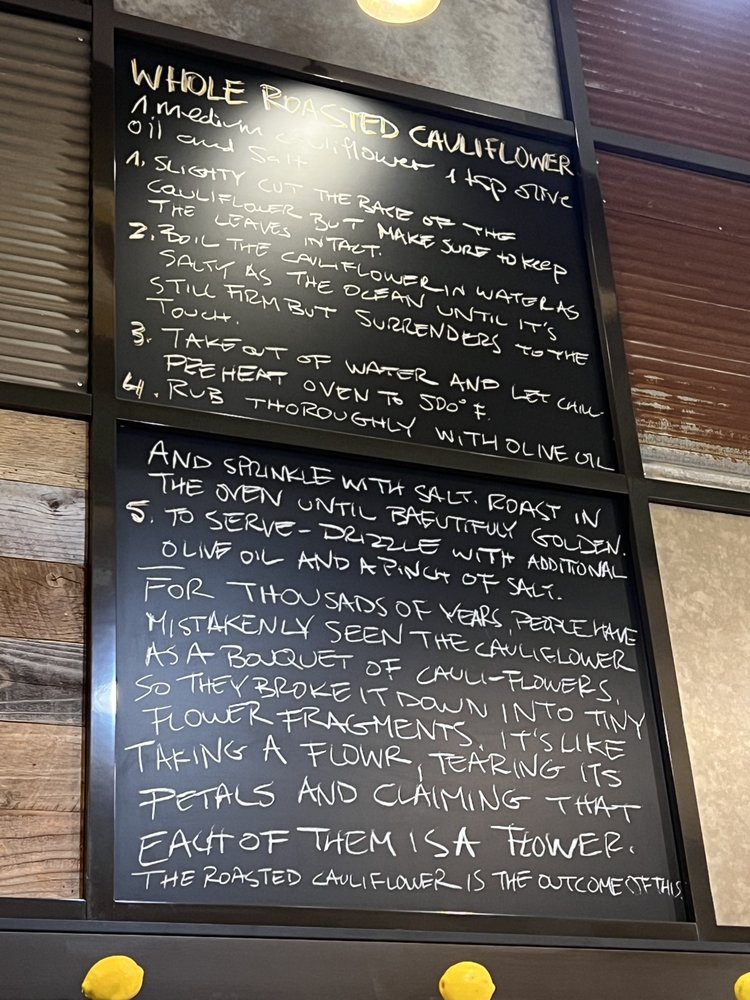 WHOLE ROASTED CAULIFLOWER
1 medium cauliflower 1 tsp olive
oil and Salt
1. SLIGHTY CUT THE BASE OF THE
CAULIFLOWER BUT MAKE SURE to keep
THE LEAVES INTACT.
2. BOIL THE CAULIFLOWER IN WATER AS
SALTY AS THE OCEAN UNTIL IT'S
STILL FIRM BUT SURRENDERS TO THE
TOUCH.
3. TAKE OUT OF WATER AND LET CHILL
PREHEAT OVEN TO 500° F.
4. RUB THOROUGHLY WITH OLIVE OIL
AND SPRINKLE WITH SALT. ROAST IN
THE OVEN UNTIL BAEUTIFULY GOLDEN.
5. TO SERVE - DRIZZLE WITH ADDITIONAL
OLIVE OIL AND A PINCH OF SALT.
FOR THOUSADS OF YEARS, PEOPLE HAVE
MISTAKENLY SEEN THE CAULIFLOWER
AS A BOUQUET OF CAULI-FLOWERS,
SO THEY BROKE IT DOWN INTO TINY
FLOWER FRAGMENTS. IT'S LIKE
TAKING A FLOWR, TEARING ITS
PETALS AND CLAIMING THAT
EACH OF THEM IS A FLOWER.
THE ROASTED CAULIFLOWER IS THE OUTCOME OF THIS